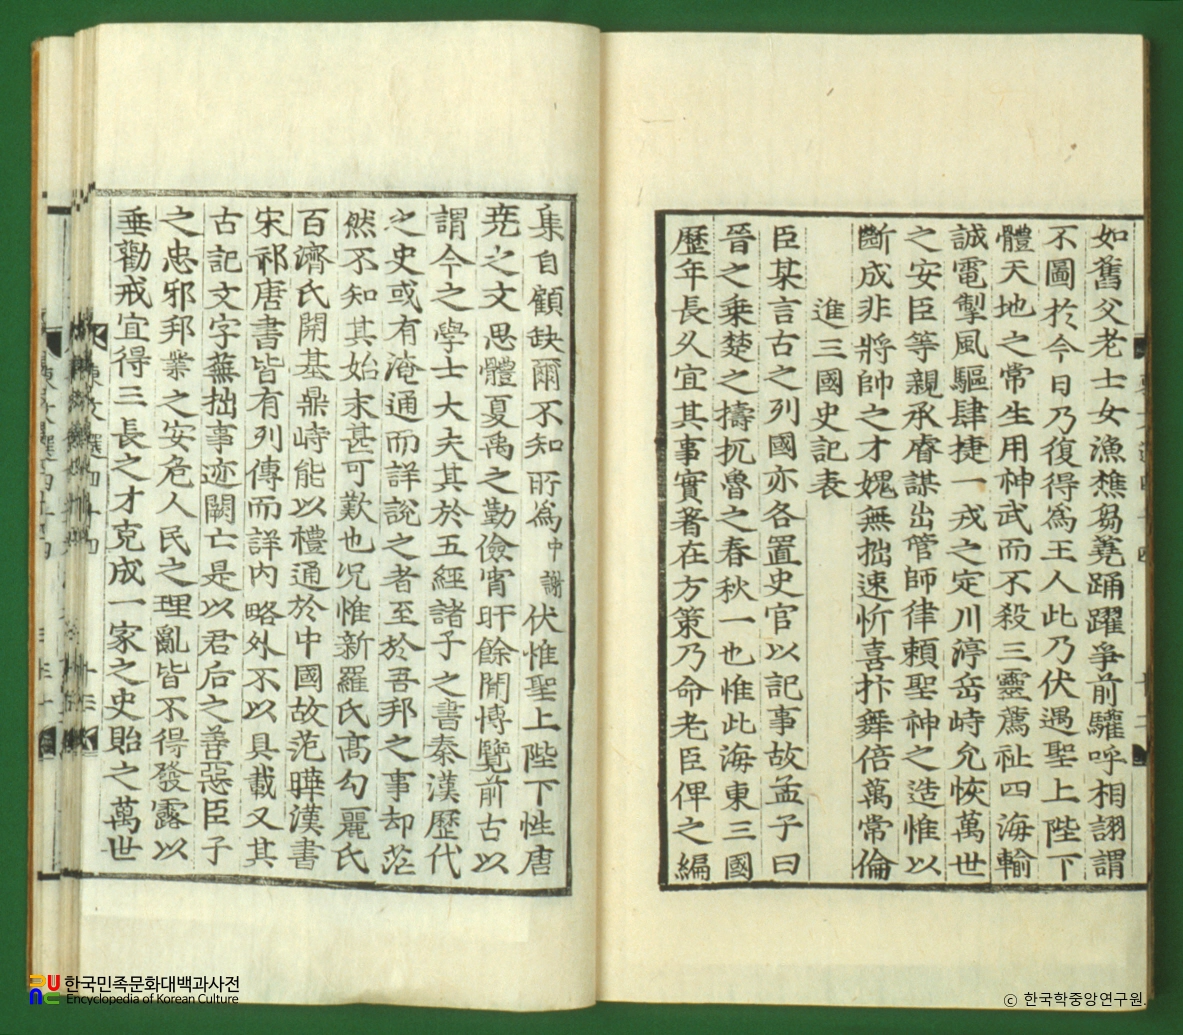 如舊父老士女漁樵芻蕘踊躍爭前驩呼相謂
不圖於今日乃復得爲王人此乃伏遇聖上陛下
體天地之常生用神武而不殺三靈薦祉四海輸
誠電掣風驅肆捷一戎之定川渟岳峙允恢萬世
之安臣等親承睿謀出管師律賴聖神之造惟以
斷成非將帥之才媿無拙速忻喜抃舞倍萬常倫
進三國史記表
臣某言古之列國亦各置史官以記事故孟子曰
晉之乗楚之擣扤魯之春秋一也惟此海東三國
歷年長久宜其事實著在方策乃命老臣俾之編
集自顧缺爾不知所爲中謝伏惟聖上陛下性唐
堯之文思體夏禹之勤儉宵旰餘閒博覽前古以
謂今之學士大夫其於五經諸子之書秦漢歷代
之史或有淹通而詳說之者至於吾邦之事却茫
然不知其始末甚可歎也况惟新羅氏高勾麗氏
百濟氏開基鼎峙能以禮通於中國故范曄漢書
宋祁唐書皆有列傳而詳內略外不以具載又其
古記文字蕪拙事迹闕亡是以君后之善惡臣子
之忠邪邦業之安危人民之理亂皆不得發露以
垂勸戒宜得三長之才克成一家之史貽之萬世
한국민족문화대백과사전
Encyclopedia of Korean Culture
ⓒ 한국학중앙연구원.